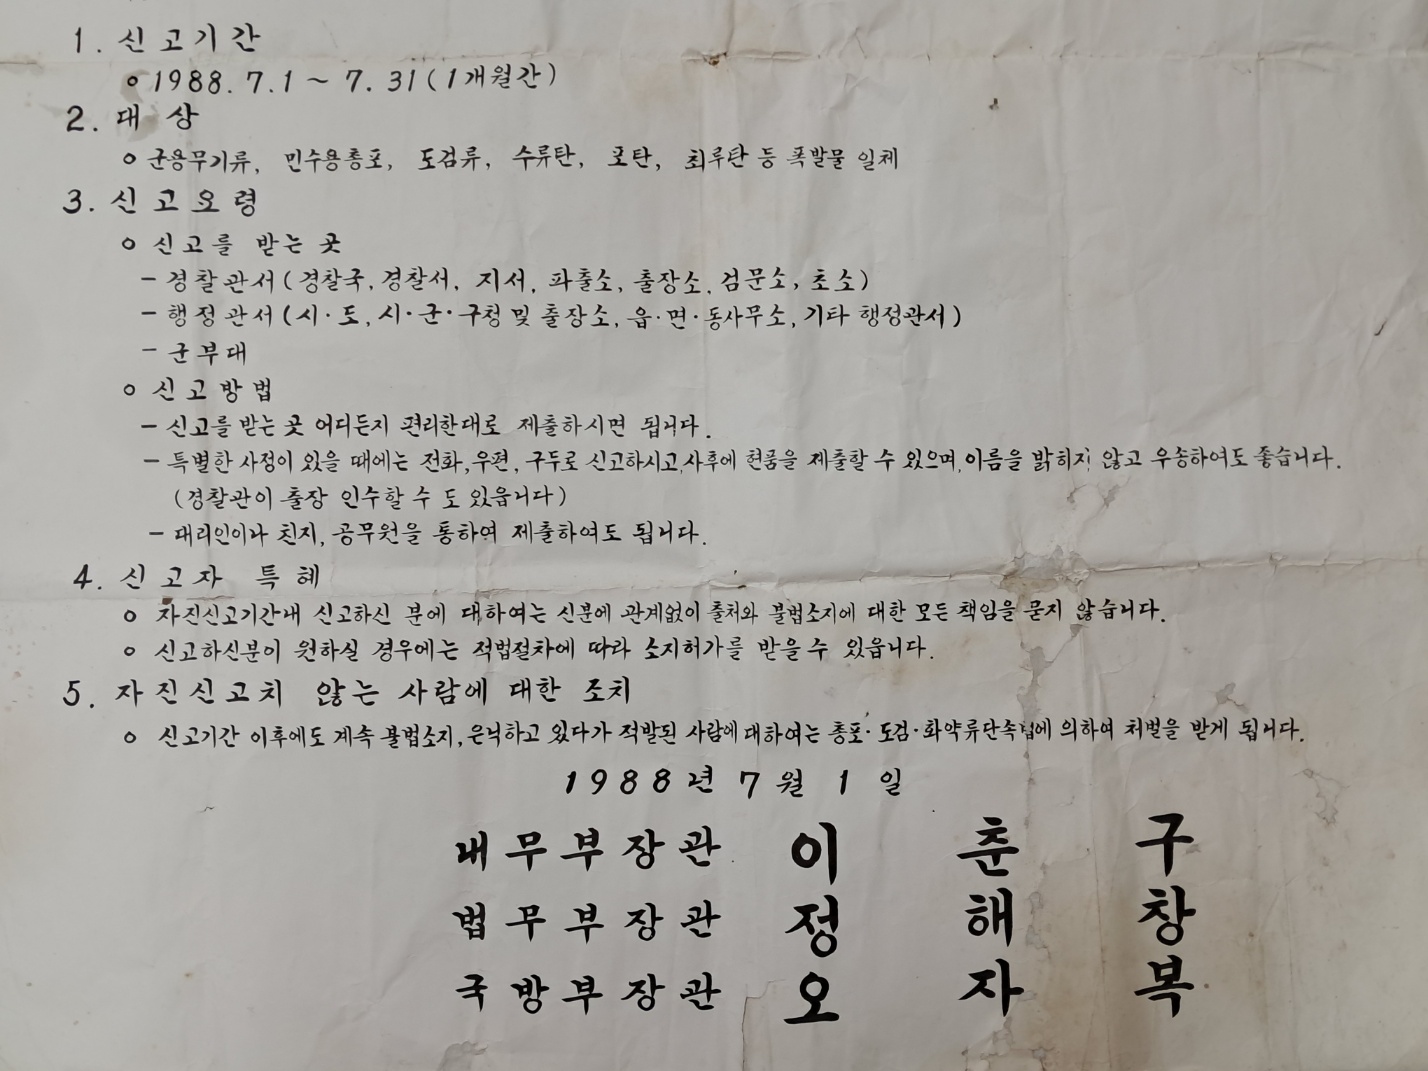 1. 신고기간
o 1988. 7. 1 ~ 7. 31 (1개월간)
2. 대상
o 군용무기류, 민수용총포, 도검류, 수류탄, 포탄, 최루탄 등 폭발물 일체
3. 신고요령
o 신고를 받는 곳
- 경찰관서(경찰국, 경찰서, 지서, 파출소, 출장소, 검문소, 초소)
- 행정관서(시·도, 시·군·구청 및 출장소, 읍·면·동사무소, 기타 행정관서)
- 군부대
o 신고방법
- 신고를 받는 곳 어디든지 편리한대로 제출하시면 됩니다.
- 특별한 사정이 있을 때에는 전화, 우편, 구두로 신고하시고, 사후에 현품을 제출할 수 있으며, 이름을 밝히지 않고 우송하여도 좋습니다.
(경찰관이 출장 인수할 수 도 있읍니다)
- 대리인이나 친지, 공무원을 통하여 제출하여도 됩니다.
4. 신고자 특혜
o 자진신고기간내 신고하신 분에 대하여는 신분에 관계없이 출처와 불법소지에 대한 모든 책임을 묻지 않습니다.
o 신고하신분이 원하실 경우에는 적법절차에 따라 소지허가를 받을수 있읍니다.
5. 자진신고치 않는 사람에 대한 조치
o 신고기간 이후에도 계속 불법소지, 은닉하고 있다가 적발된 사람에 대하여는 총포·도검·화약류단속법에 의하여 처벌을 받게 됩니다.
1988년 7월 1일
내무부장관 이춘구
법무부장관 정해창
국방부장관 오자복